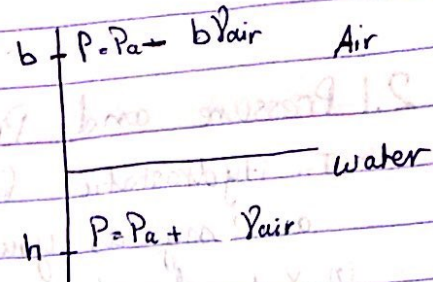 b P=Pa - bγair Air
water
h P=Pa + γair